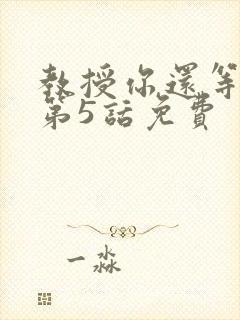 教授你還等
第5話免費
一淼